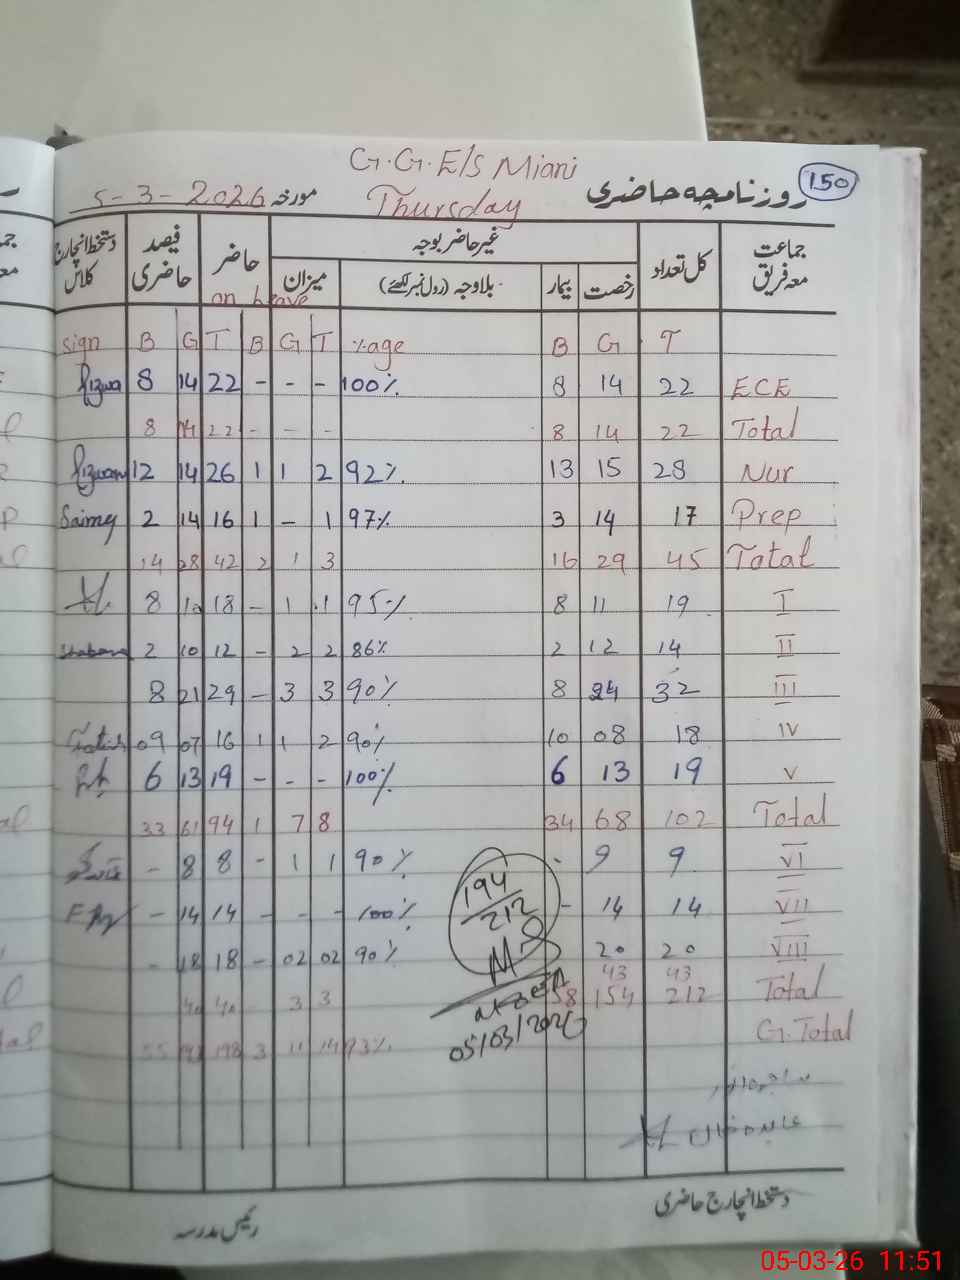 G.G.E/S Miani
150 روزنامچہ حاضری Thursday مورخہ 5-3-2026
جماعت معہ فریق کل تعداد غیر حاضر بوجہ حاضر فیصد حاضری دستخط انچارج کلاس
رخصت بیمار بلاوجہ (رول نمبر لکھئے) میزان
on leave
sign B G T B G T %age B G T
Rizwan 8 14 22 - - - 100% 8 14 22 ECE
8 14 22 - - - 8 14 22 Total
Rizwan 12 14 26 1 1 2 92% 13 15 28 Nur
Saimy 2 14 16 1 - 1 97% 3 14 17 Prep
14 28 42 2 1 3 16 29 45 Total
8 10 18 - 1 1 95% 8 11 19 I
Shabana 2 10 12 - 2 2 86% 2 12 14 II
8 21 29 - 3 3 90% 8 24 32 III
09 07 16 1 1 2 90% 10 08 18 IV
6 13 19 - - - 100% 6 13 19 V
33 61 94 1 7 8 34 68 102 Total
- 8 8 - 1 1 90% - 9 9 VI
- 14 14 - - - 100% - 14 14 VII
- 18 18 - 02 02 90% 20 20 VIII
43 43
40 40 3 3 58 154 212 Total
55 143 198 3 11 14 93% G.Total
194
212
05/03/2026
دستخط انچارج حاضری
رئیس مدرسہ
05-03-26 11:51